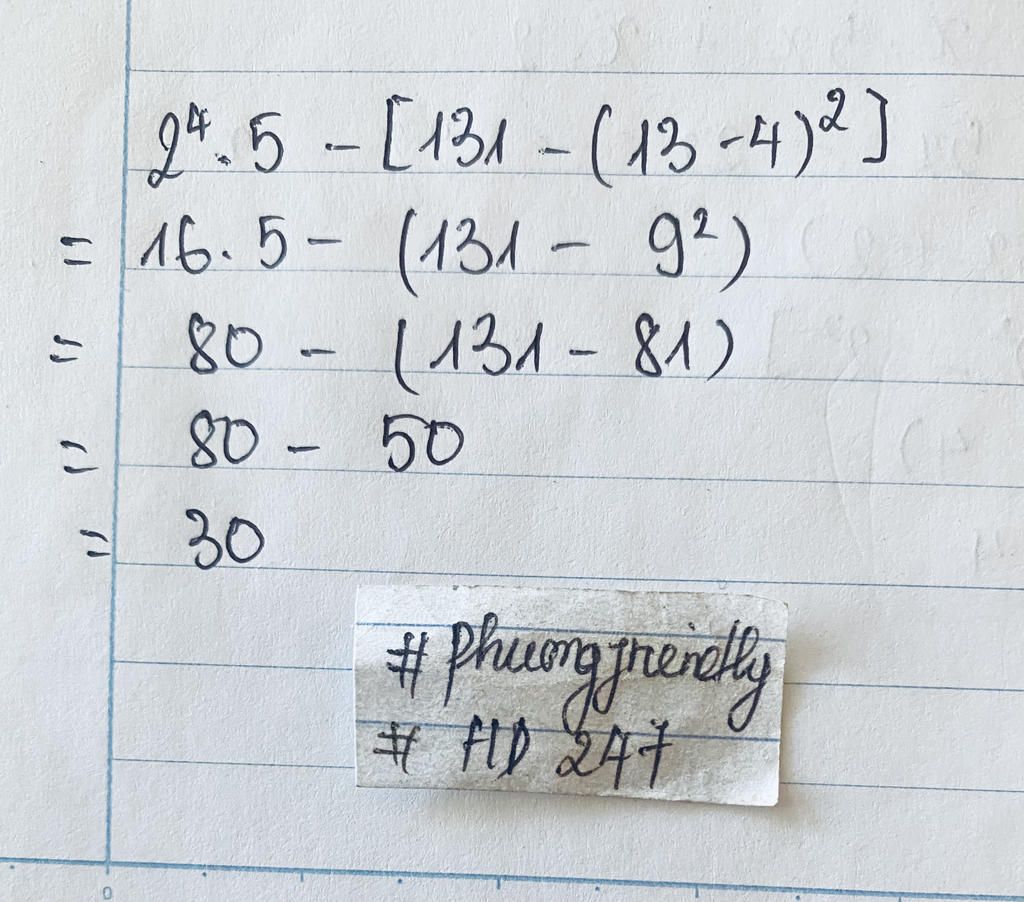 2⁴.5 - [131 - (13 - 4)²]
= 16.5 - (131 - 9²)
= 80 - (131 - 81)
= 80 - 50
= 30
# phuongfriendly
# HD 247
0